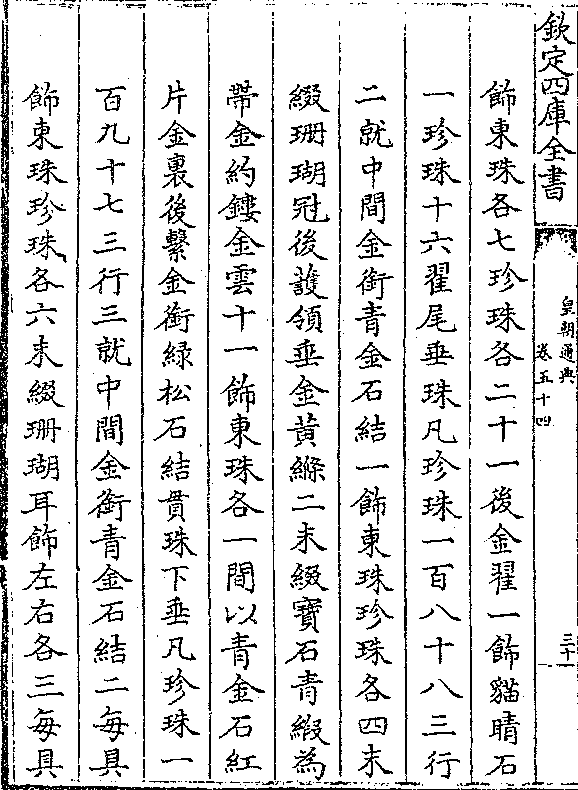 欽定四庫全書
皇朝通典
卷五十四
三十
飾東珠各七珍珠各二十一後金翟一飾貓睛石
一珍珠十六翟尾垂珠凡珍珠一百八十八三行
二就中間金銜青金石結一飾東珠珍珠各四末
綴珊瑚冠後護領垂金黃縧二末綴寶石青緞為
帶金約鏤金雲十一飾東珠各一間以青金石紅
片金裏後繫金銜緑松石結貫珠下垂凡珍珠一
百九十七三行三就中間金銜青金石結二每具
飾東珠珍珠各六末綴珊瑚耳飾左右各三每具